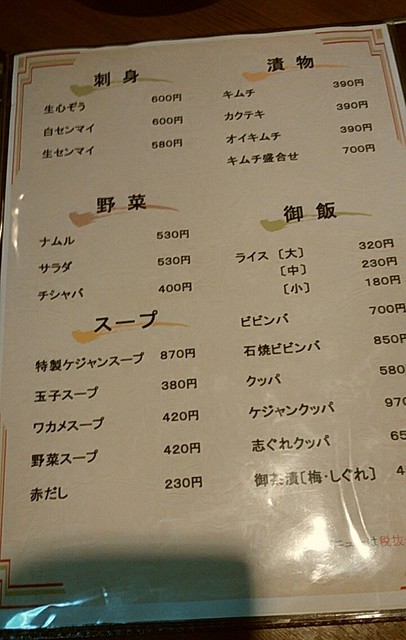 刺身
生心ぞう 600円
白センマイ 600円
生センマイ 580円
野菜
ナムル 530円
サラダ 530円
チシャバ 400円
スープ
特製ケジャンスープ 870円
玉子スープ 380円
ワカメスープ 420円
野菜スープ 420円
赤だし 230円
漬物
キムチ 390円
カクテキ 390円
オイキムチ 390円
キムチ盛合せ 700円
御飯
ライス〔大〕 320円
〔中〕 230円
〔小〕 180円
ビビンバ 700円
石焼ビビンバ 850円
クッパ 580
ケジャンクッパ 970
志ぐれクッパ 65
御茶漬〔梅・しぐれ〕 4
ニューは税抜